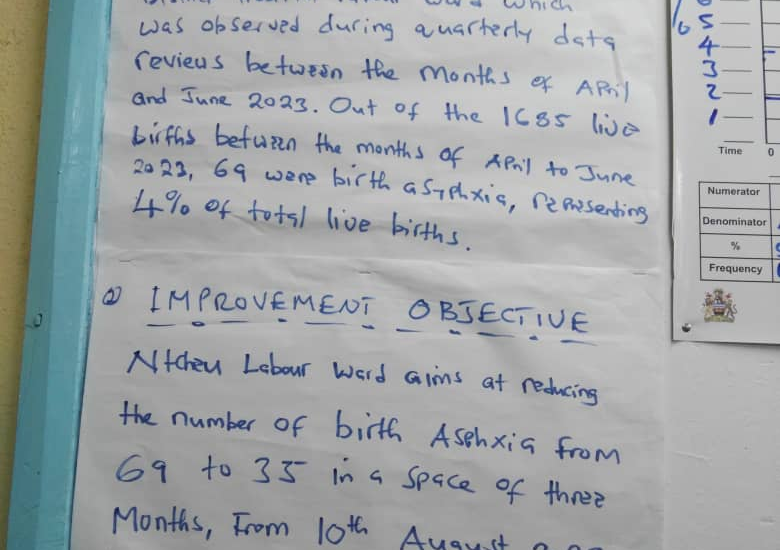 which
was observed during quarterly data
reviews between the months of April
and June 2023. Out of the 1685 live
births between the months of April to June
2023, 69 were birth asyphxia, representing
4% of total live births.
IMPROVEMENT OBJECTIVE
Ntcheu Labour Ward aims at reducing
the number of birth Asphxia from
69 to 35 in a space of three
Months, From 10th August
5
4
3
2
1
Time 0
Numerator
Denominator
%
Frequency